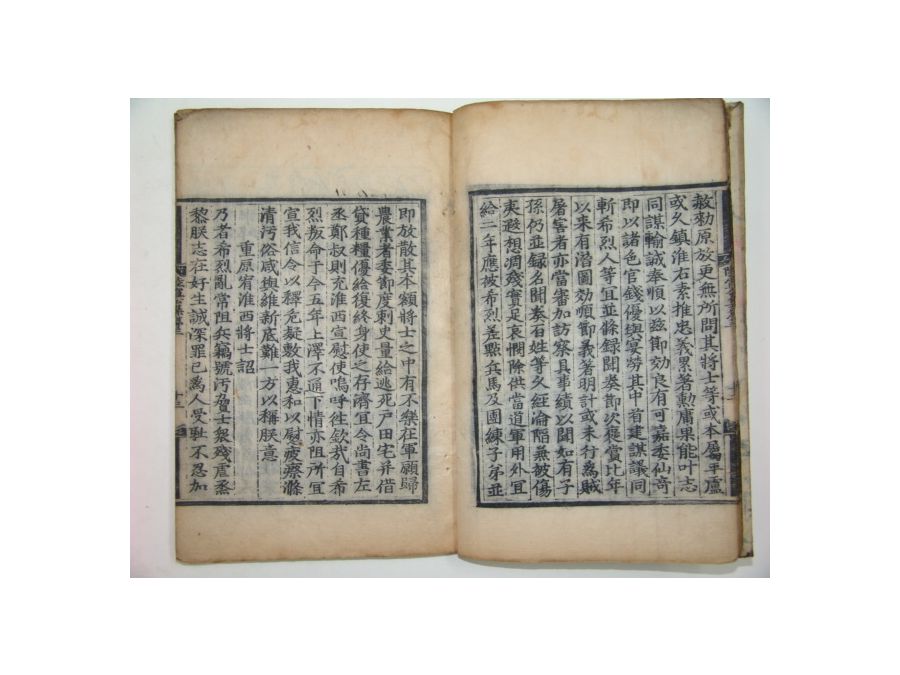 赦勑原放更無所問其將士等或本屬平盧
或久鎮淮右素推忠義累著勳庸果能叶志
同謀輸誠奉順以玆卽効良有可嘉委仙竒
即以諸色官錢優與宴勞其中首建謀議同
斬希烈人等宜並條録聞奏節次襃賞比年
以來有潛圖効順節義著明計或未行爲賊
屠害者亦當審加訪察具事績以聞如有子
孫仍並録名聞奏百姓等久經淪陷兼被傷
夷遐想凋殘實足哀憫除供當道軍用外宜
給二年應被希烈差㸃兵馬及團練子弟並
即放散其本額將士之中有不樂在軍願歸
農業者委節度刺史量給逃死户田宅并借
貸種糧優給復終身使之存濟宜令尚書左
丞鄭叔則充淮西宣慰使嗚呼往欽哉自希
烈叛命于今五年上澤不通下情亦阻所宜
宣我信令以釋危疑敷我惠和以慰疲瘵滌
清汚俗咸與維新底難一方以稱朕意
重原宥淮西將士詔
乃者希烈亂常阻兵竊號汚脅士衆殘虐烝
黎朕志在好生誠深罪已爲人受恥不忍加
十三